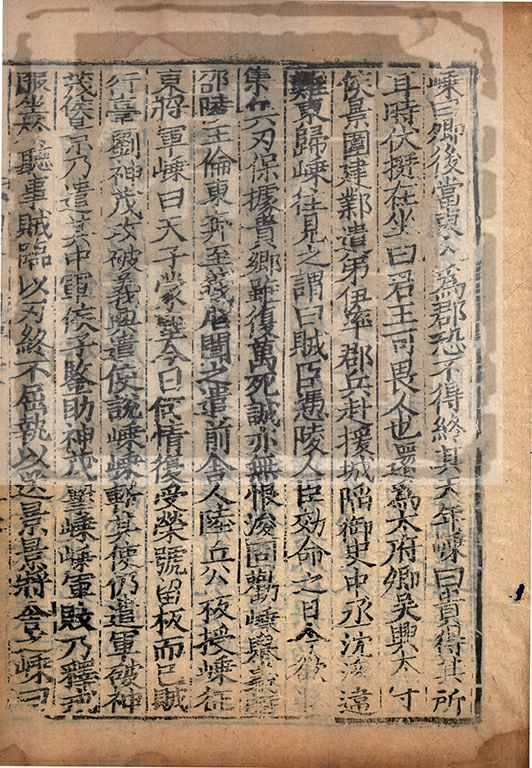 嵊曰卿後當東入為郡恐不得終其天年嵊曰貴得其所
耳時伏挺在坐曰君王可畏人也還為太府卿吳興太守
侯景圍建鄴遣弟伊率郡兵赴援城陷御史中丞沈浚違
難東歸嵊往見之謂曰賊臣憑陵人臣効命之日今欲
集兵刃保據貴鄉雖復萬死誠亦無恨浚固勸嵊舉義
邵陵王倫東奔至錢唐聞之遣前舍人陸丘公板授嵊征
東將軍嵊曰天子蒙塵今日何情復受榮號留板而已賊
行臺劉神茂攻破義興遣使說嵊嵊斬其使仍遣軍破神
茂侯景乃遣其中軍侯子鑒助神茂擊嵊嵊軍敗乃釋戎
服坐於聽事賊臨以刃終不屈執以送景景將舍之嵊曰